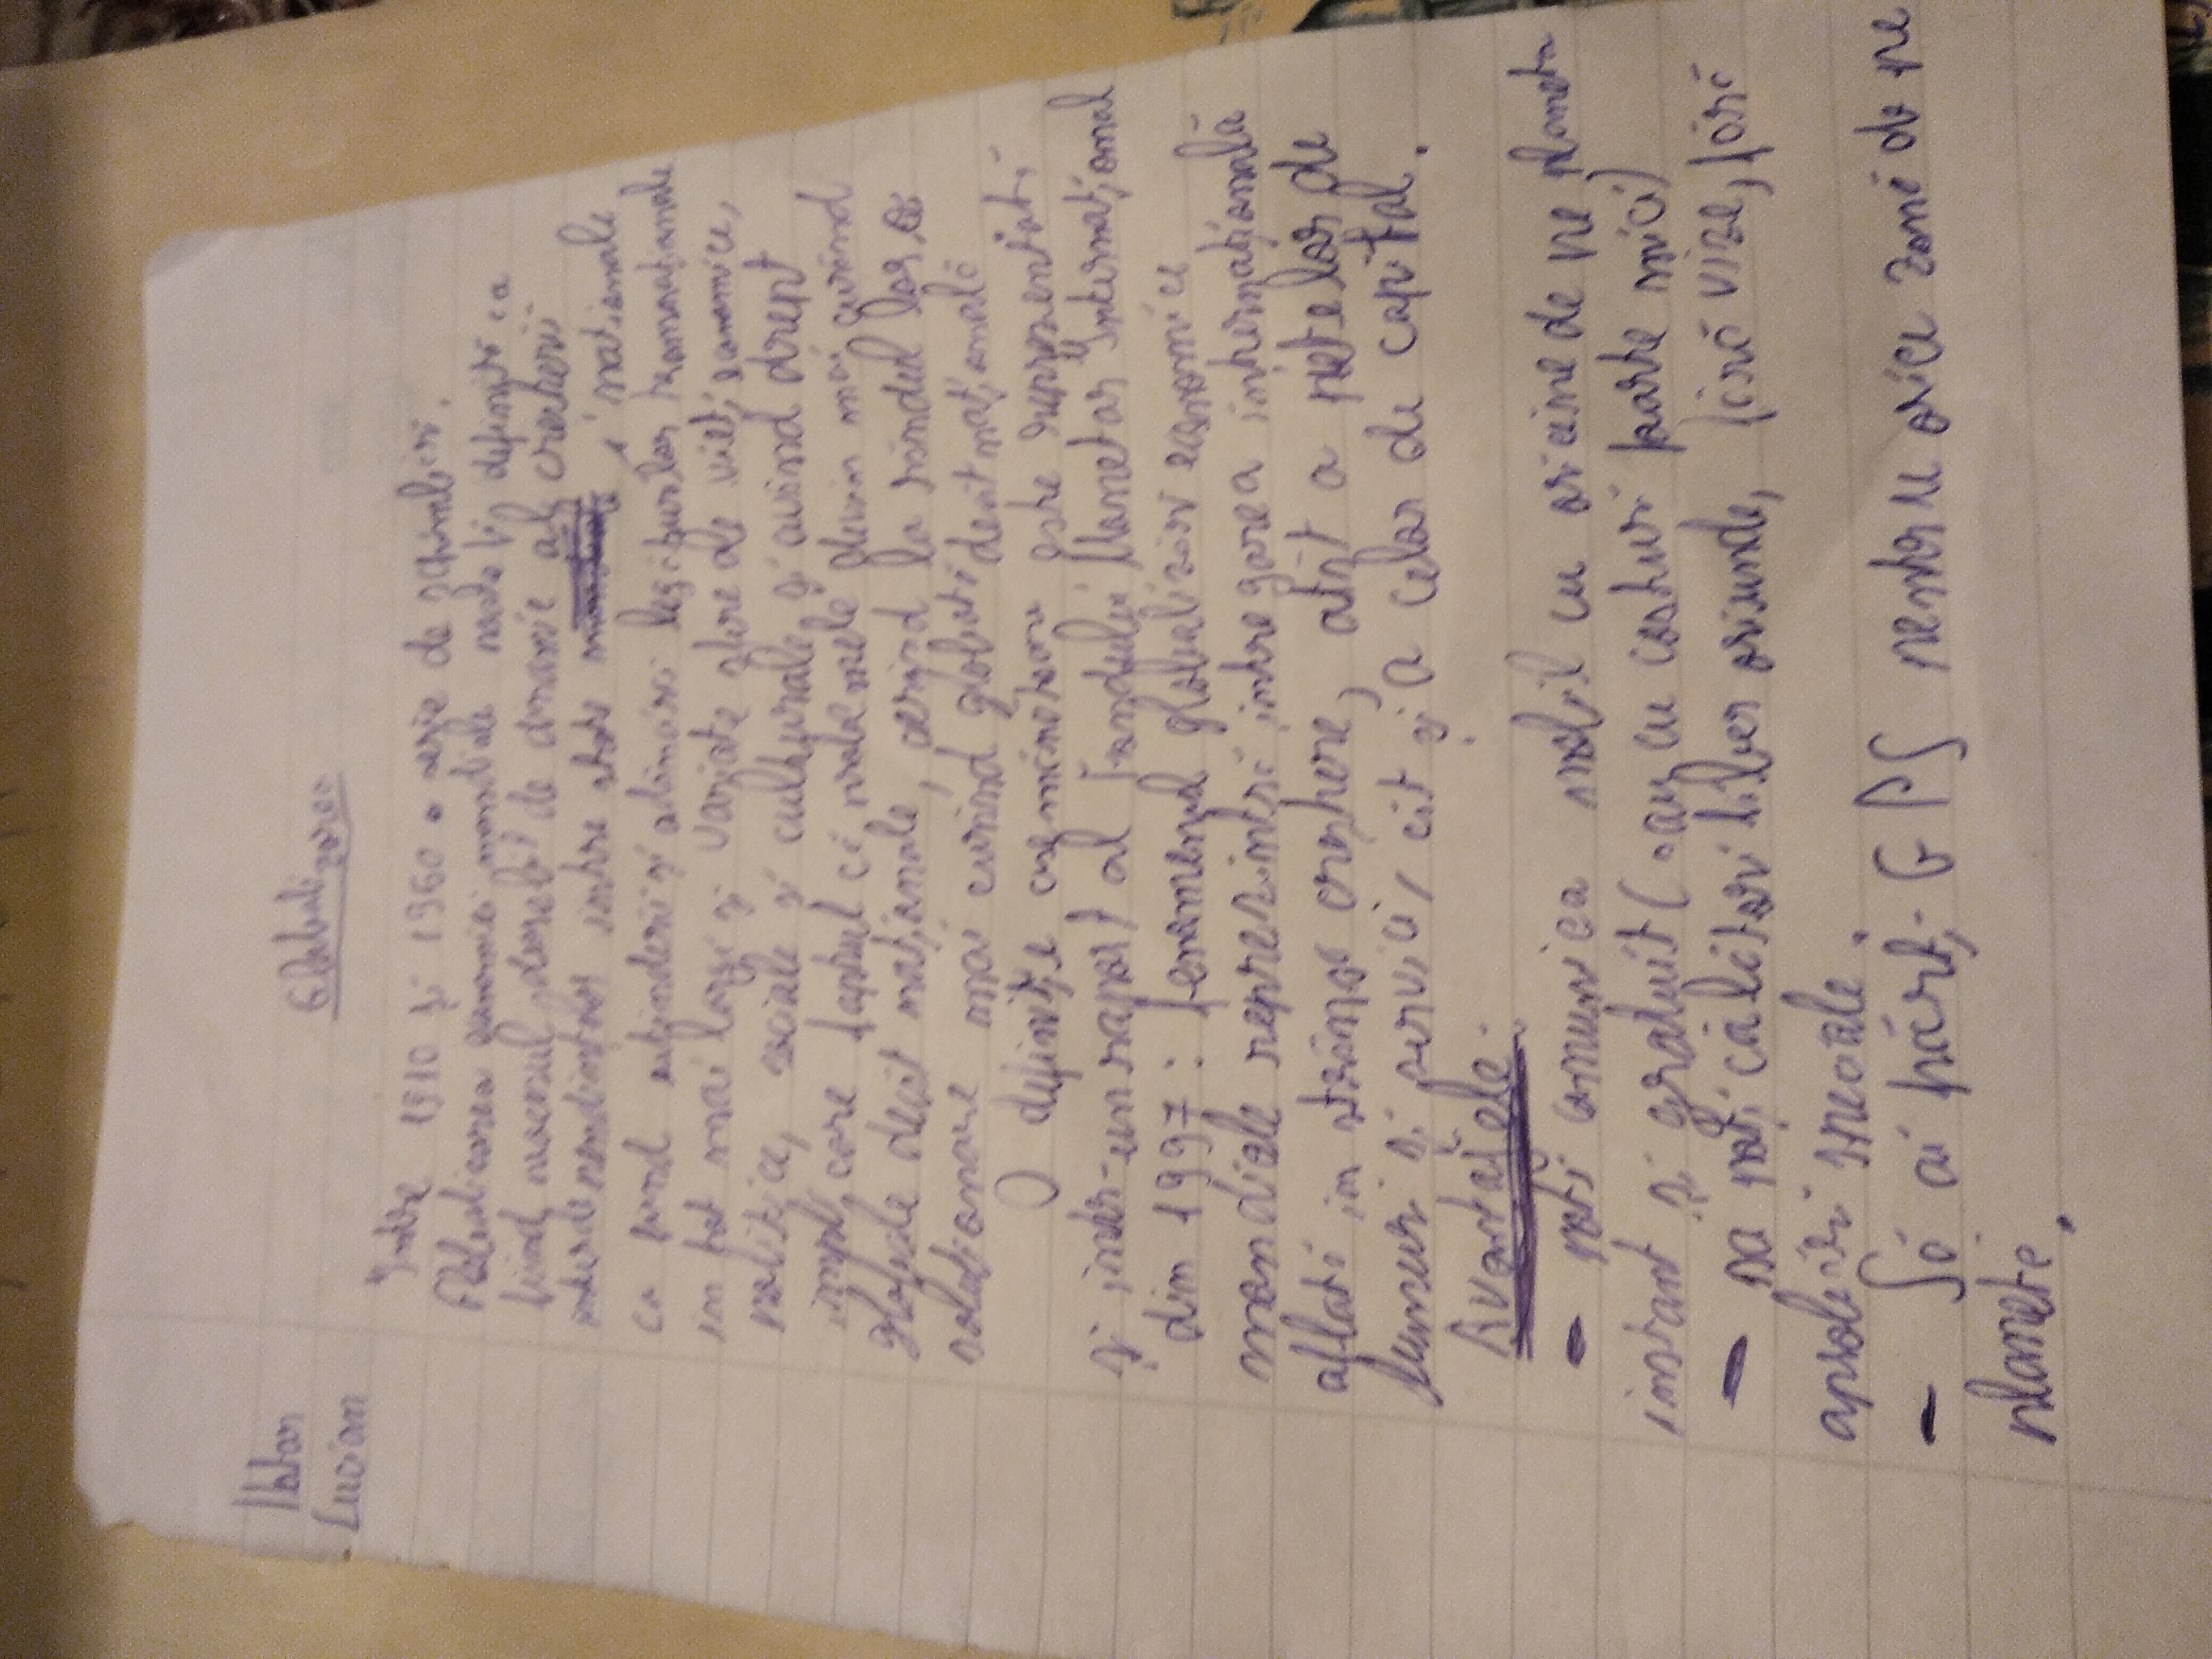 Lucian
Globalizarea
Între 1910 și 1960 o serie de schimbări.
Globalizarea economiei mondiale poate fi definită ca
fiind procesul deosebit de dinamic al creșterii
interdependențelor între state naționale
ca urmare extinderii și adâncirii legăturilor transnaționale
în tot mai largi și variate sfere ale vieții economice,
politice, sociale și culturale și având drept
implic care faptul că problemele devin mai curând
globale decât naționale, cerând la rândul lor o
soluționare mai curând globală decât națională
O definiție asemănătoare este reprezentată
și într-un raport al Fondului Monetar Internațional
din 1997: fenomenul globalizării economiei
mondiale reprezintă integrarea internațională
aflată în strânsă creștere, atât a piețelor de
bunuri și servicii, cit și a celor de capital.
Avantajele:
- poți comunica mobil cu oricine de pe planeta
instant și gratuit (sau cu costuri foarte mici)
- sa poți călători liber oriunde, fără vize, fără
aprobări speciale.
- Să ai hărți, GPS pentru orice zonă de pe
planetă.